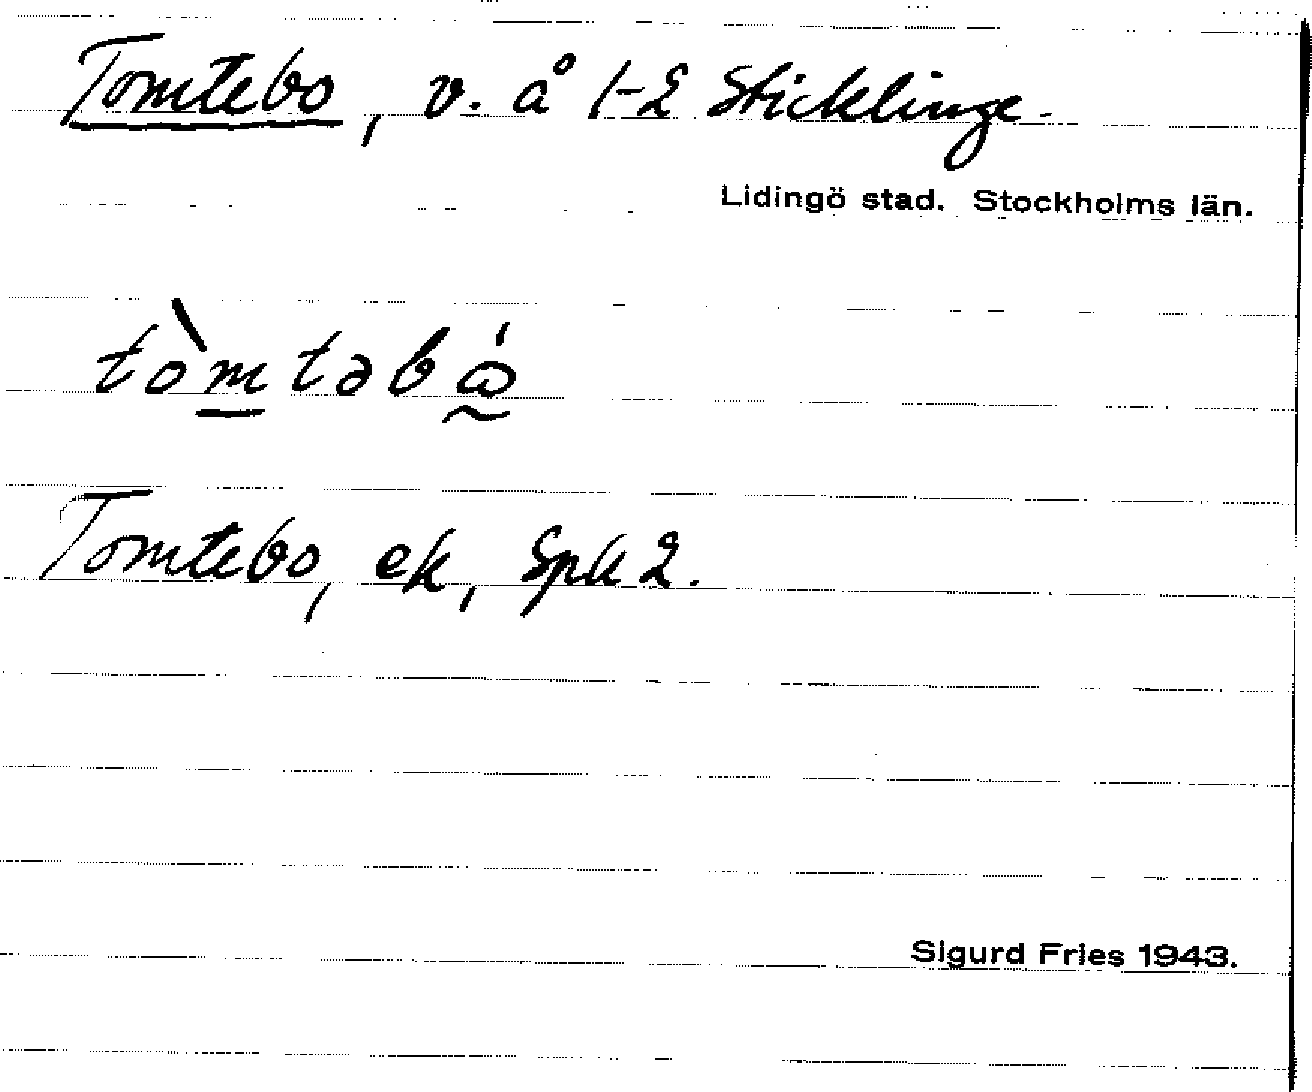 Tomtebo, v. å 1-2 Sticklinge.
Lidingö stad. Stockholms län.
tòm̲təbώ̰
Tomtebo, ek, Spk 2.
Sigurd Fries 1943.